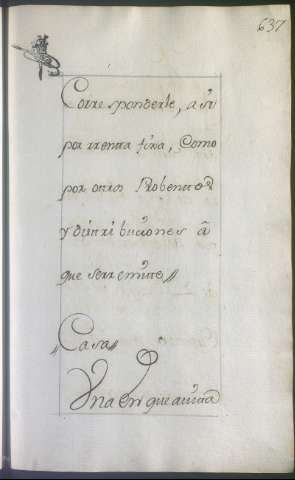 637
Corresponderle, a si
por rrenta fixa, Como
por otros Probentos
y distribuciones a
que se rremite //
// Casa //
Una en que auita